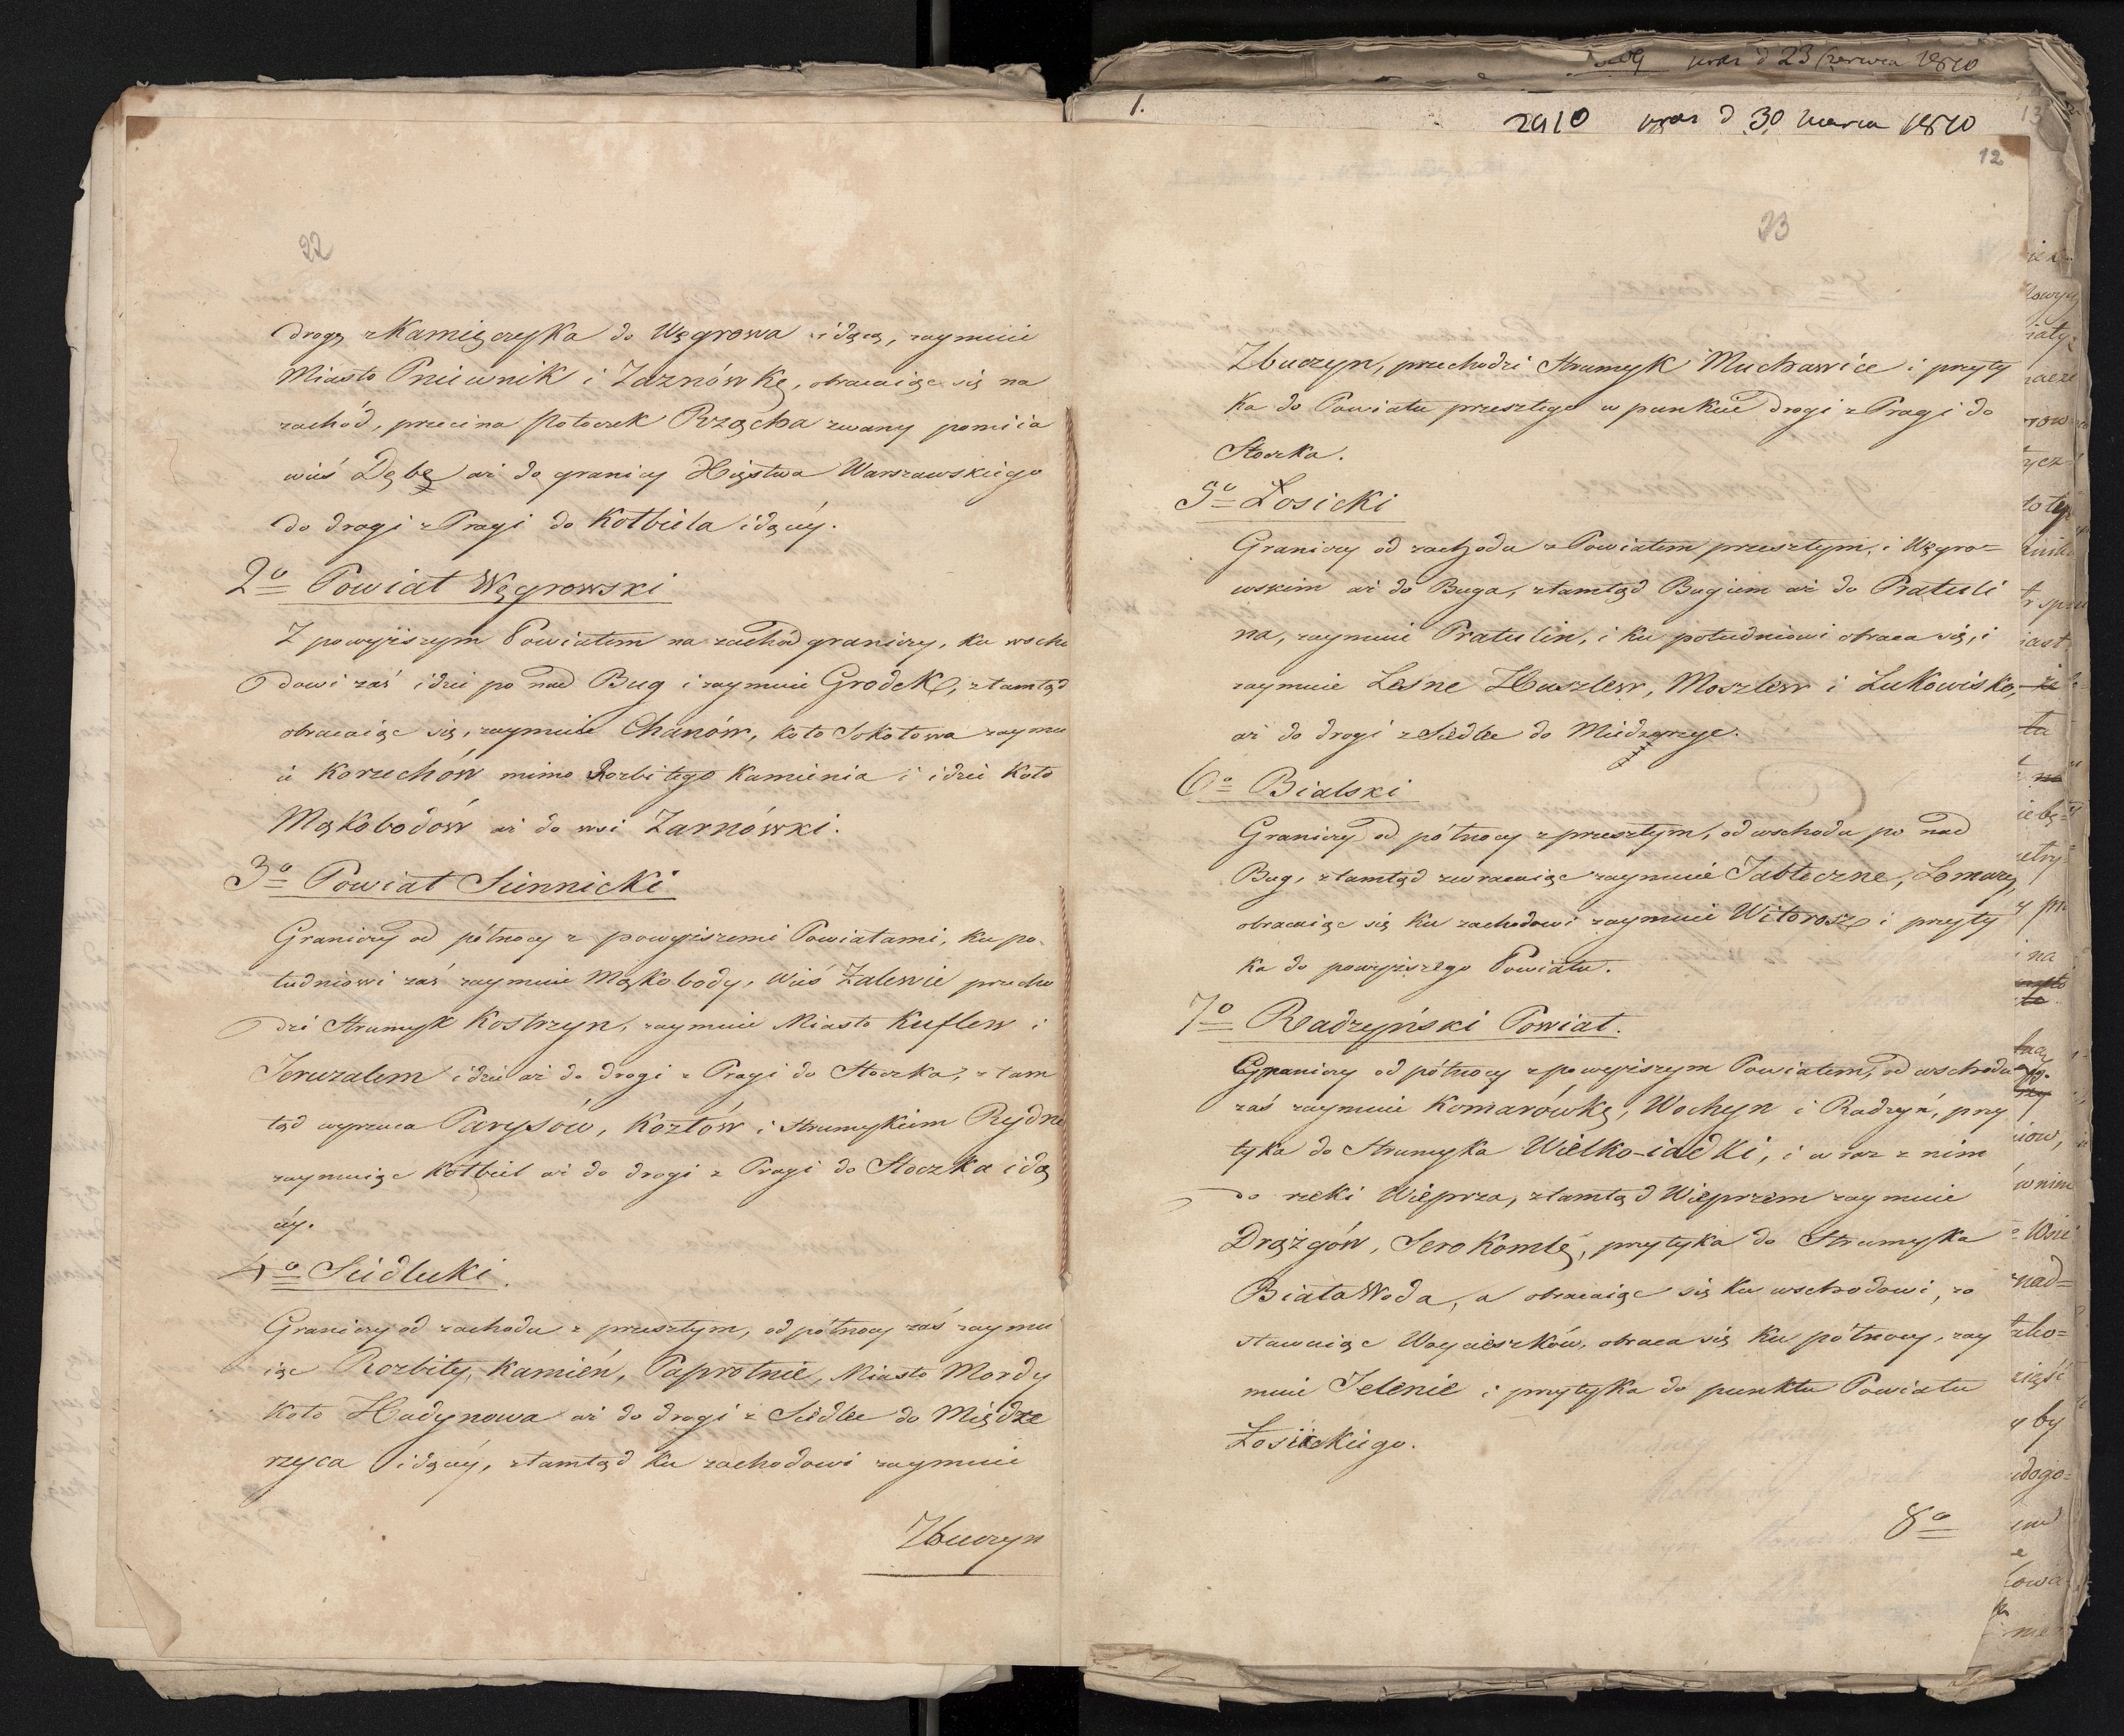 22
drogę z Kamięczyka do Węgrowa idącą, zaymuie
Miasto Pniewnik i Zaznówkę, obracaiąc się na
zachód, przecina Potoczek Rządcha zwany pomiia
wieś Dębę aż do granicy Xięstwa Warszawskiego
do drogi z Pragi do Kołbiela idącéy.
2o Powiat Węgrowski
Z powyższym Powiatem na zachód graniczy, ku wscho
dowi zaś idzie po nad Bug i zaymuie Grodek, ztamtąd
obracaiąc się, zaymuie Chanów, koło Sokołowa zaymu
ie Korzuchów mimo Rozbitego Kamienia i idzie koło
Mąkobodów aż do wsi Zarnówki.
3o Powiat Siennicki
Graniczy od północy z powyższemi Powiatami, ku po
łudniowi zaś zaymuie Mąkobody, wieś Zalewie przecho
dzi Strumyk Kostrzyn, zaymuie Miasto Kuflew i
Jeruzalem idzie aż do drogi z Pragi do Stoczka, z tam
tąd wyrzuca Parysów, Kozłów i Strumykiem Rydno
zaymuiąc Kołbiel aż do drogi z Pragi do Stoczka idą
céy.
4o Siedlecki.
Graniczy od zachodu z przeszłym, od północy zaś zaymu
iąc Rozbity, Kamień, Paprotnie, Miasto Mordy
koło Hadynowa aż do drogi z Siedlec do Międze
rzyca idącéy, ztamtąd ku zachodowi zaymuie
Zbuczyn
23 Czerwca 1810
1.
2910 d 30 Marca 1810
13
12
23
Zbuczyn, przechodzi Strumyk Muchawice i przyty
ka do Powiatu przeszłego w punkcie drogi z Pragi do
Stoczka.
5o Łosicki
Graniczy od zachodu z Powiatem przeszłym, i Węgro=
wskim aż do Buga, ztamtąd Bugiem aż do Pratuli
na, zaymuie Pratulin, i ku południowi obraca się, i
zaymuie Lesne Huszlew, Moszlew i Łukowisko,
aż do drogi z Siedlec do Miedzerzyc.
6o Bialski
Graniczy od północy z przeszłym, od wschodu po nad
Bug, ztamtąd zwracaiąc zaymuie Jabłeczne, Lomazy,
obracaiąc się ku zachodowi zaymuie Witorosz i przyty
ka do powyższego Powiatu.
7o Radzyński Powiat.
Graniczy od północy z powyższym Powiatem, od wschodu
zaś zaymuie Komarówkę, Wochyn i Radzyń, przy
tyka do Strumyka Wielko-iadki, i wraz z nim
do rzeki Wieprza, ztamtąd Wieprzem zaymuie
Drążgów, Serokomlę, przytyka do Strumyka
Biała Woda, a obracaiąc się ku wschodowi, zo
stawuiąc Woycieszków, obraca się ku północy, zay
muie Jelenie i przytyka do punktu Powiatu
Łosickiego.
8o